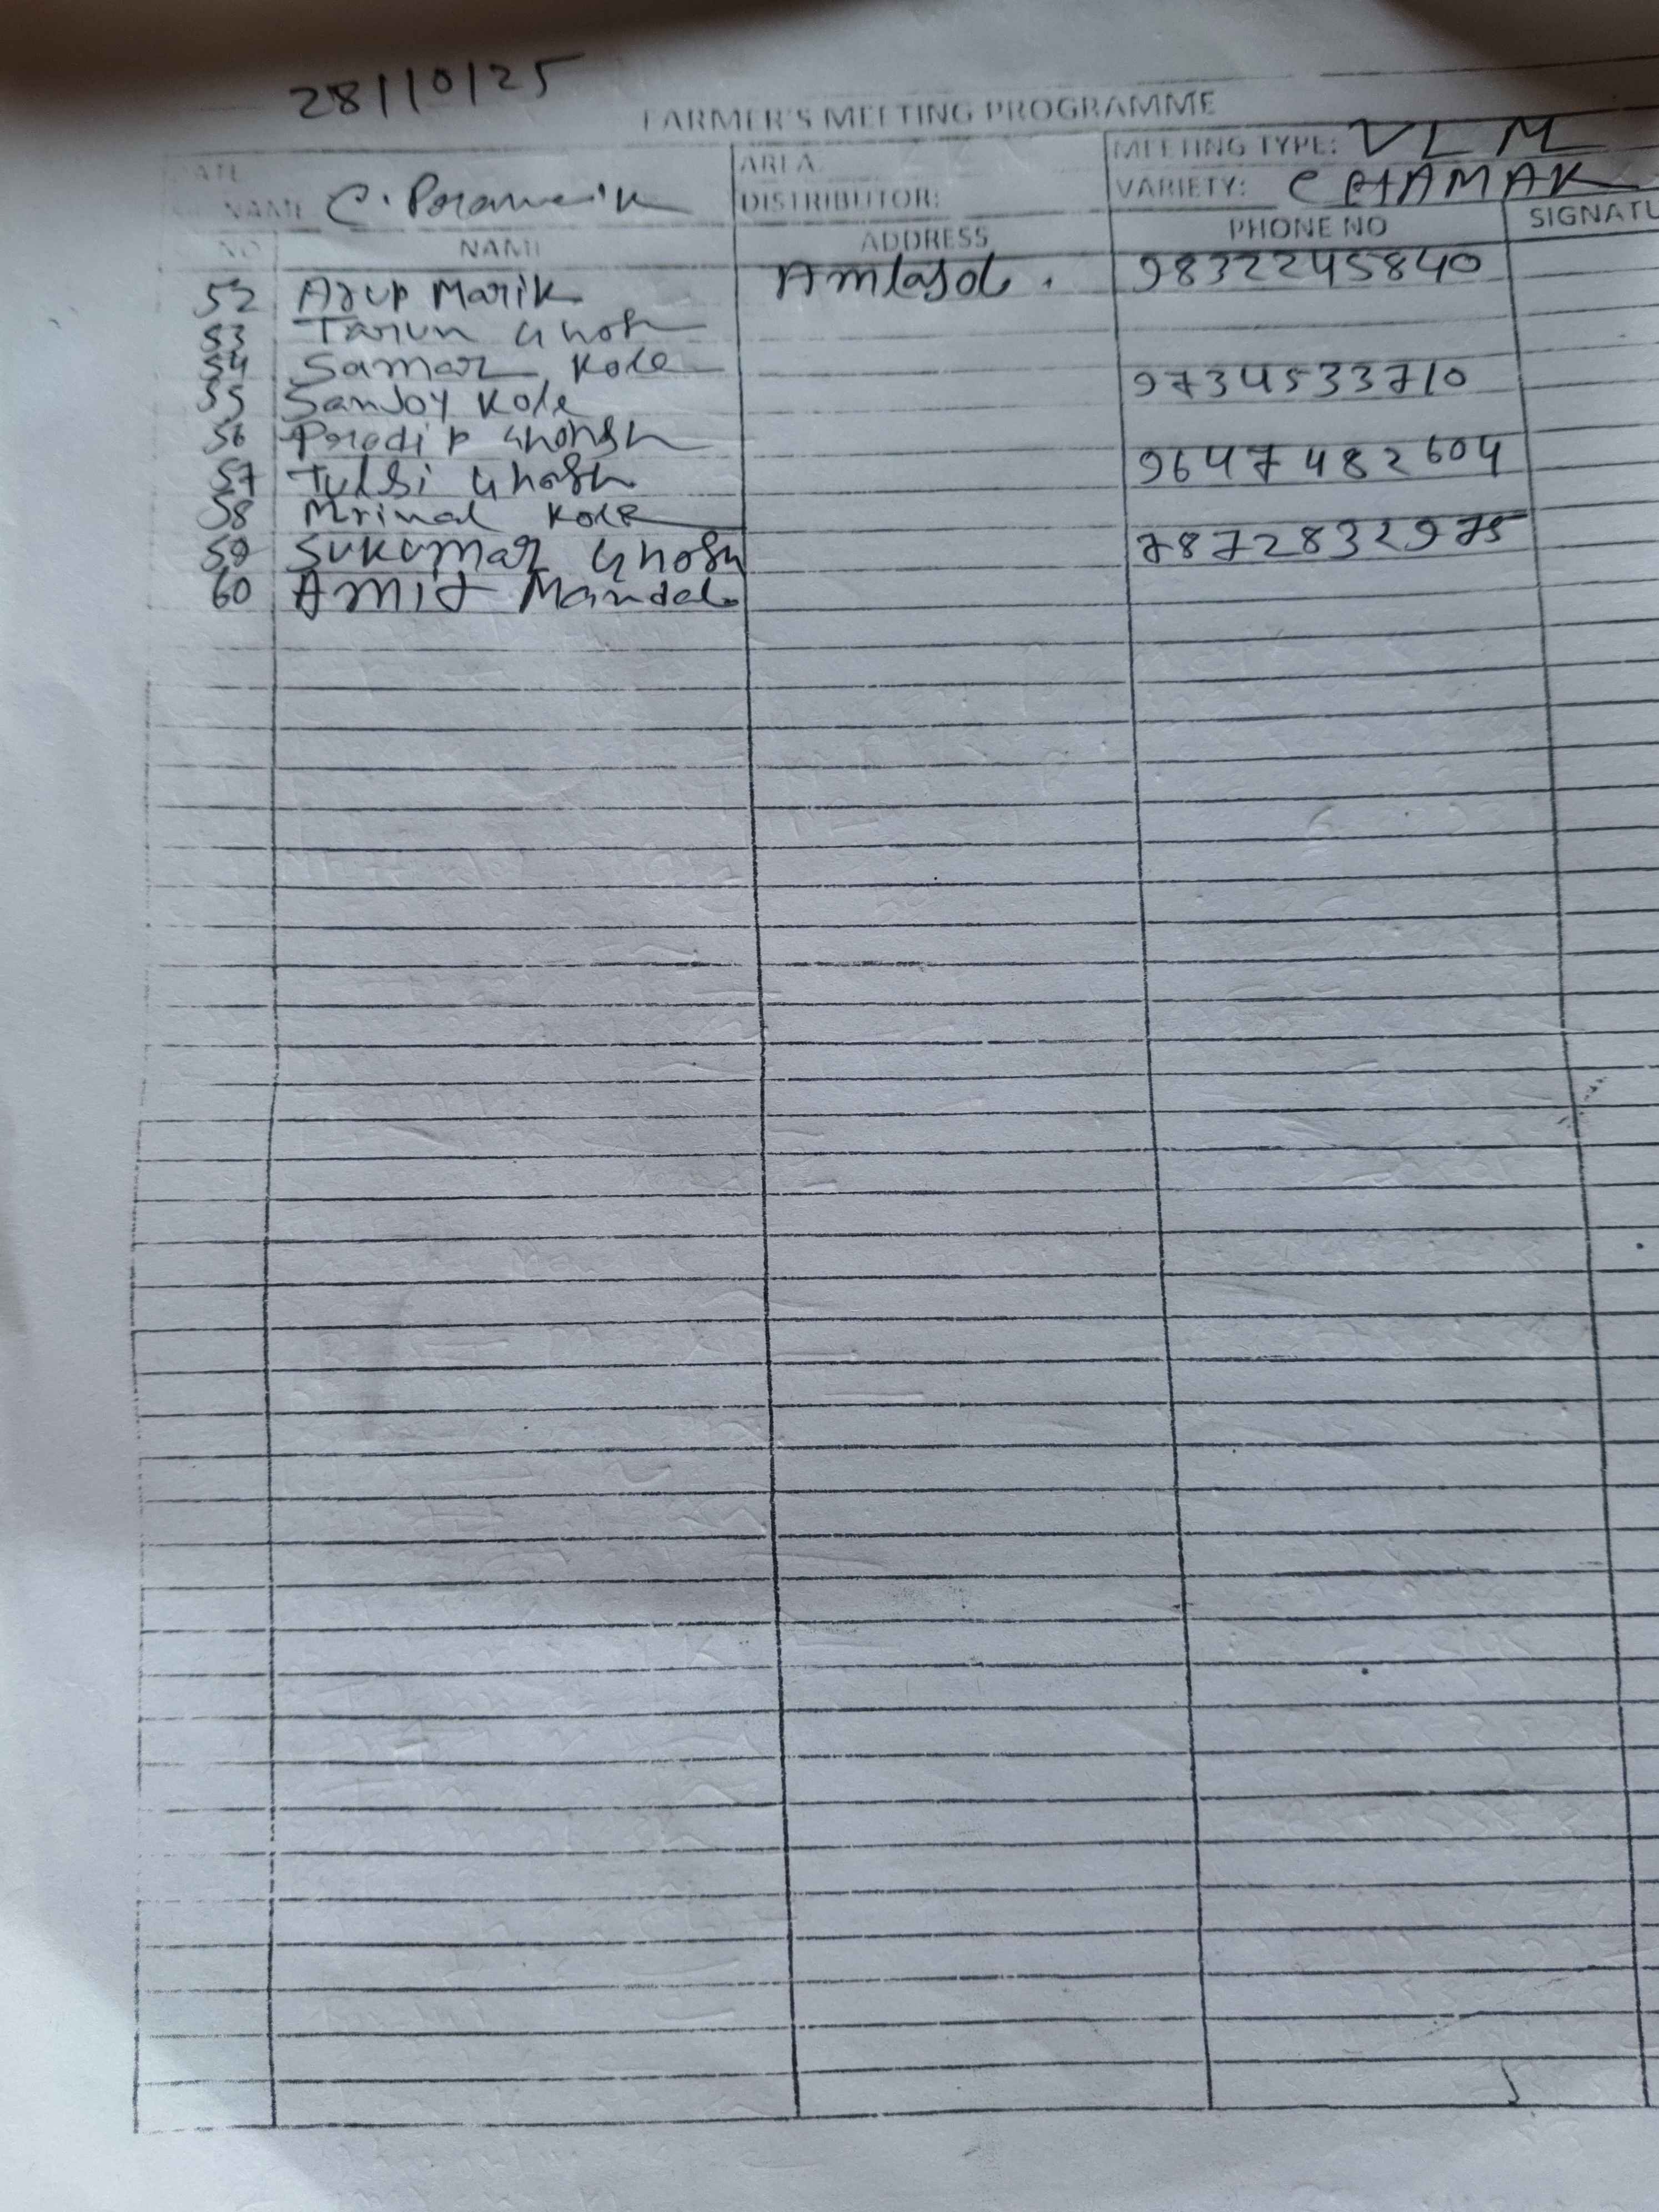 28/10/25
FARMER'S MEETING PROGRAMME
DATE AREA MEETING TYPE: VLM
NAME C. Poramanik DISTRIBUTOR: VARIETY: CHAMAK
NO NAME ADDRESS PHONE NO SIGNATU
52 Arup Marik Amlasol. 9832245840
53 Tarun Ghosh
54 Samar Kole
55 Sanjoy Kole 9734533710
56 Poradip Ghohsh
57 Tulsi Ghosh 9647482604
58 Mrinal Kole
59 Sukumar Ghosh 7872832975
60 Amit Mandal